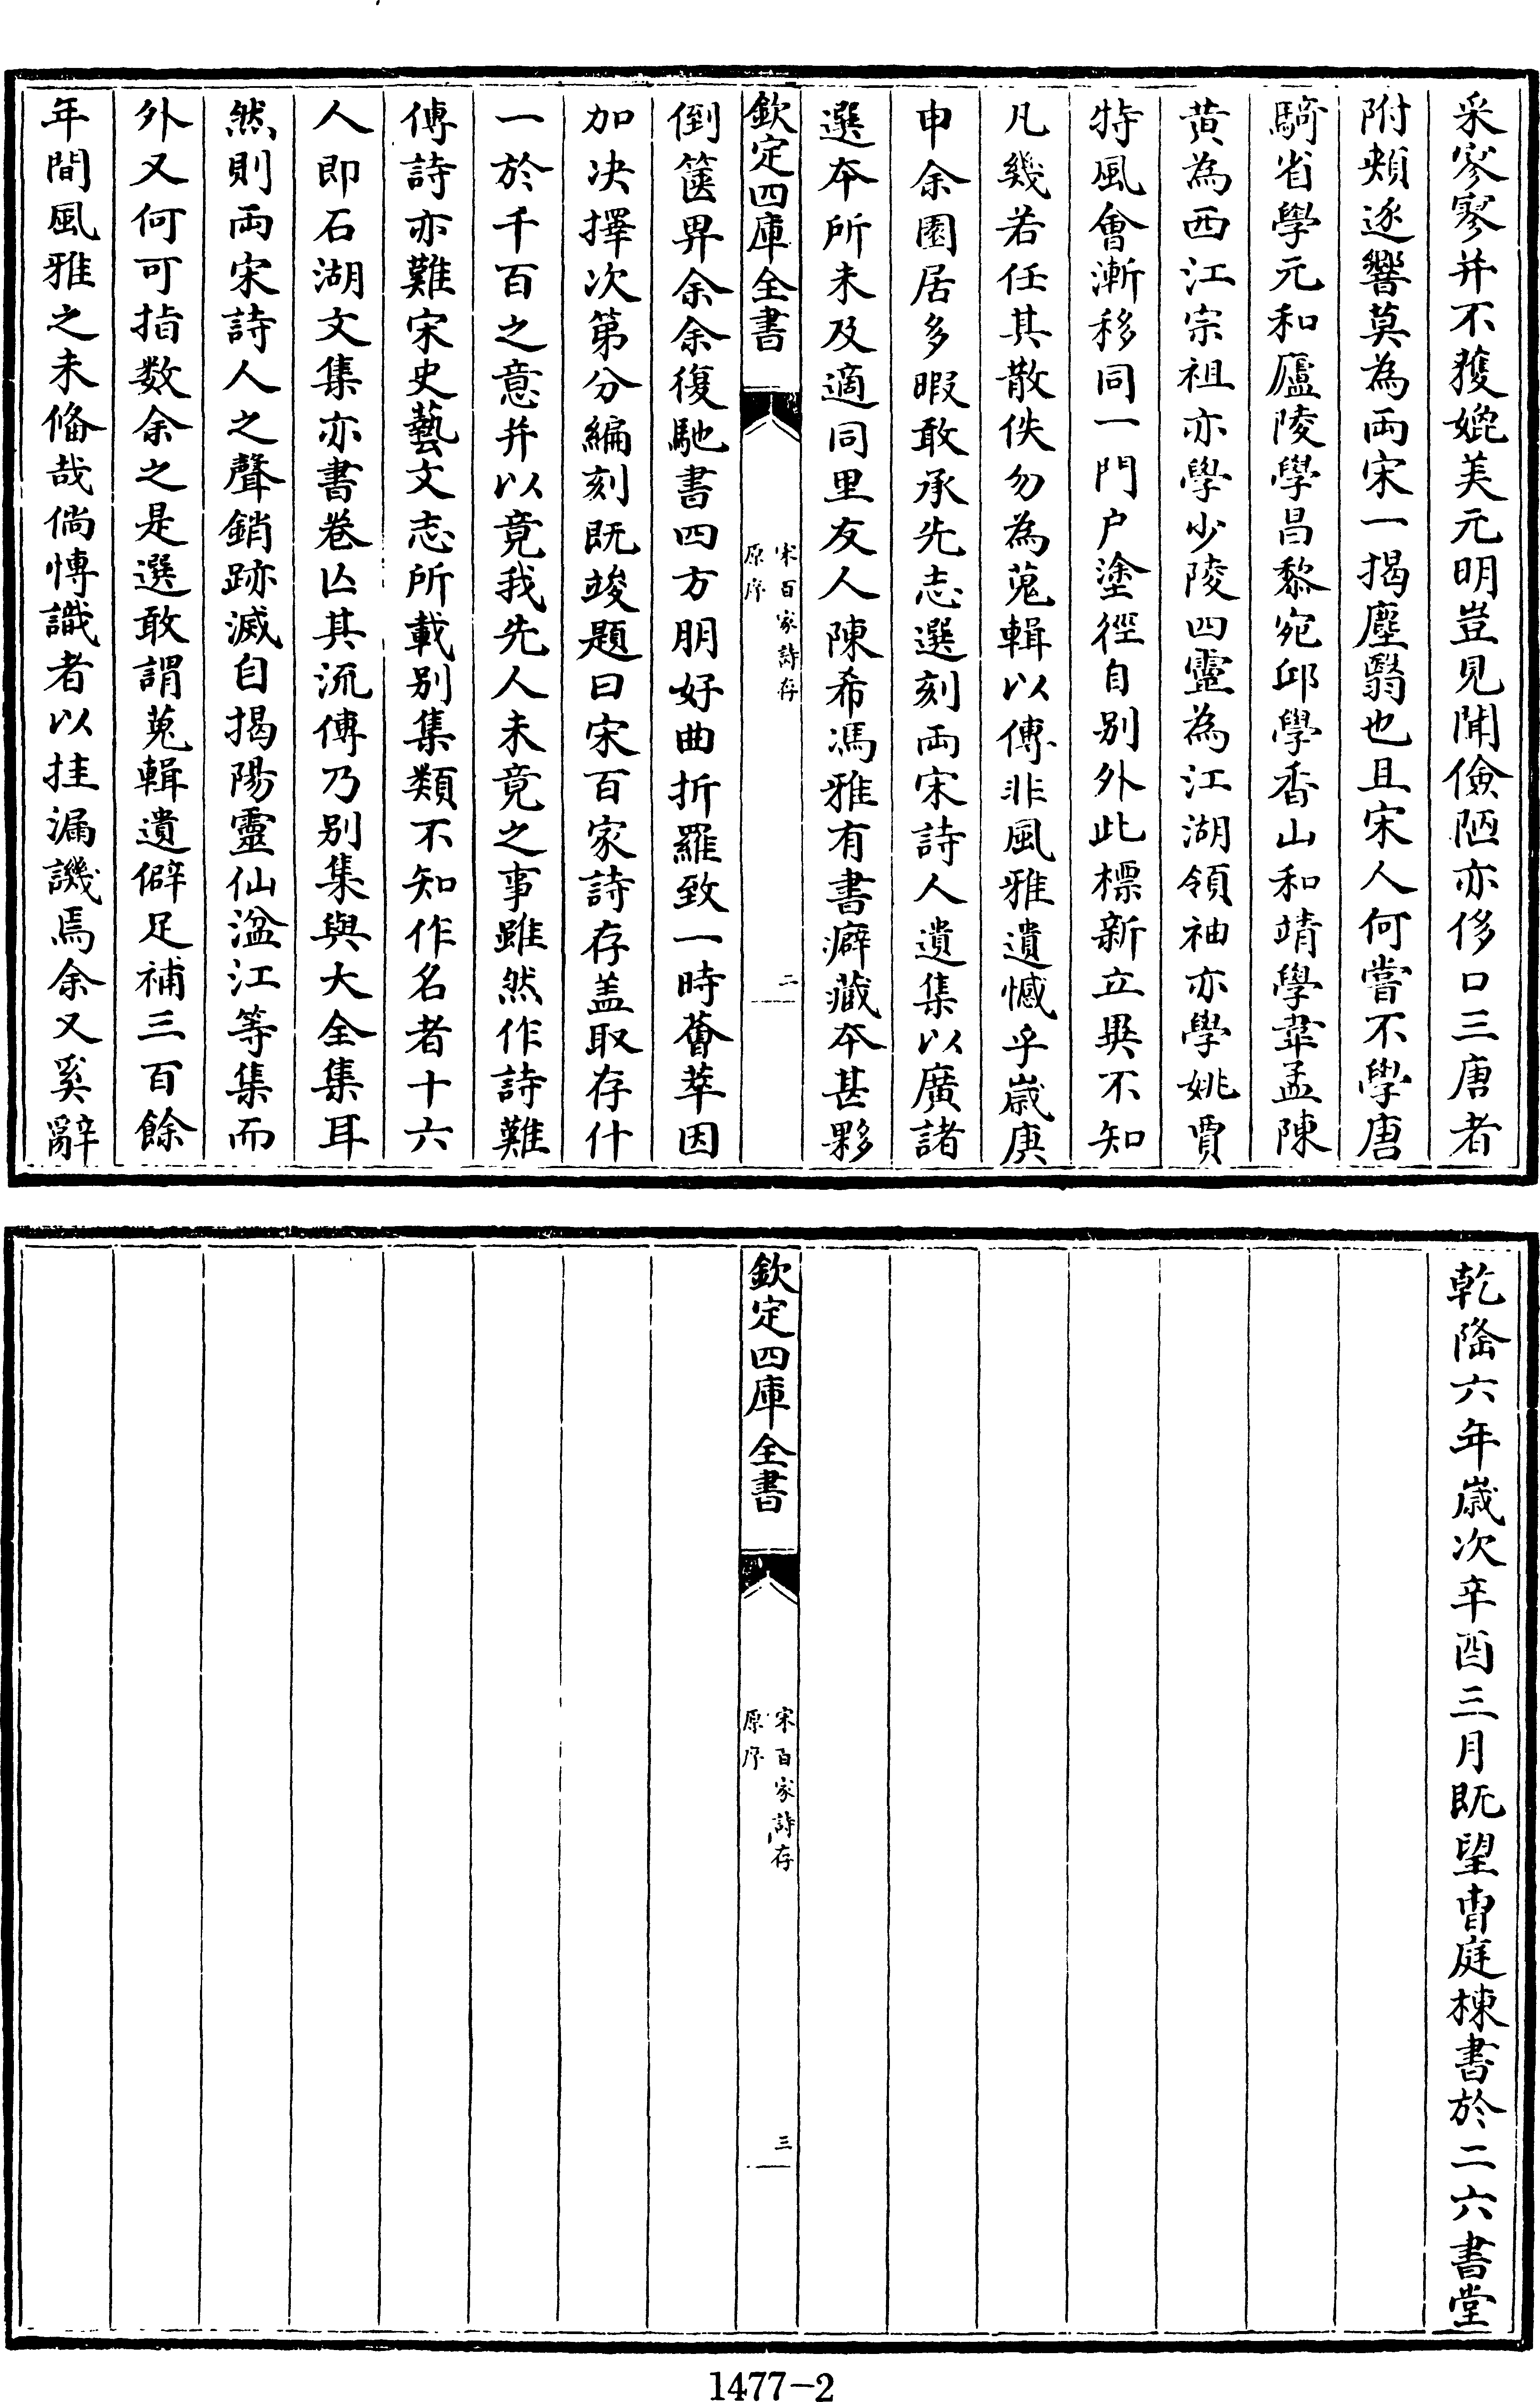 采寥寥并不獲媲美元明豈見聞儉陋亦侈口三唐者
附頰逐響莫為兩宋一揭塵翳也且宋人何嘗不學唐
騎省學元和廬陵學昌黎宛邱學香山和靖學韋孟陳
黄為西江宗祖亦學少陵四靈為江湖領袖亦學姚賈
特風會漸移同一門户塗徑自别外此標新立異不知
凡幾若任其散佚勿為蒐輯以傳非風雅遺憾乎嵗庚
申余園居多暇敢承先志選刻兩宋詩人遺集以廣諸
選本所未及適同里友人陳希馮雅有書癖藏本甚夥
欽定四庫全書
宋百家詩存
原序
二
倒篋畀余余復馳書四方朋好曲折羅致一時薈萃因
加决擇次第分編刻既竣題曰宋百家詩存盖取存什
一於千百之意并以竟我先人未竟之事雖然作詩難
傳詩亦難宋史藝文志所載别集類不知作名者十六
人即石湖文集亦書卷亾其流傳乃别集與大全集耳
然則兩宋詩人之聲銷跡滅自揭陽靈仙湓江等集而
外又何可指数余之是選敢謂蒐輯遺僻足補三百餘
年間風雅之未俻哉倘愽識者以挂漏譏焉余又奚辭
乾隆六年嵗次辛酉三月既望曺庭棟書於二六書堂
欽定四庫全書
宋百家詩存
原序
三
1477-2